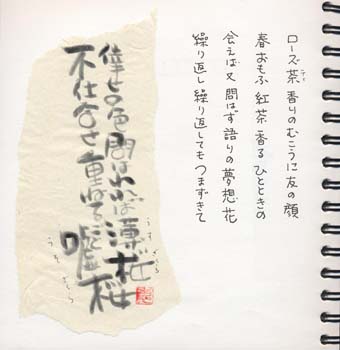 ローズ茶 香りのむこうに友の顔
ティ
春おもふ 紅茶香る ひとときの
会えば又 問はず語りの夢想花
繰り返し 繰り返しても つまずきて
倖せの色問はれれば薄桜
うすざくら
不仕合せ重ねて嘘桜
うそざくら